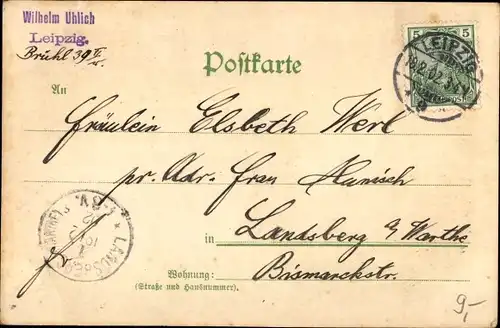 Wilhelm Uhlich
Leipzig.
Brühl 39
5 5
LEIPZIG
Postkarte
An
Fräulein Elsbeth Werl
pr. Adr. Frau Hanisch
in Landsberg a/Warthe
Wohnung: Bismarckstr.
(Straße und Hausnummer).
9,-